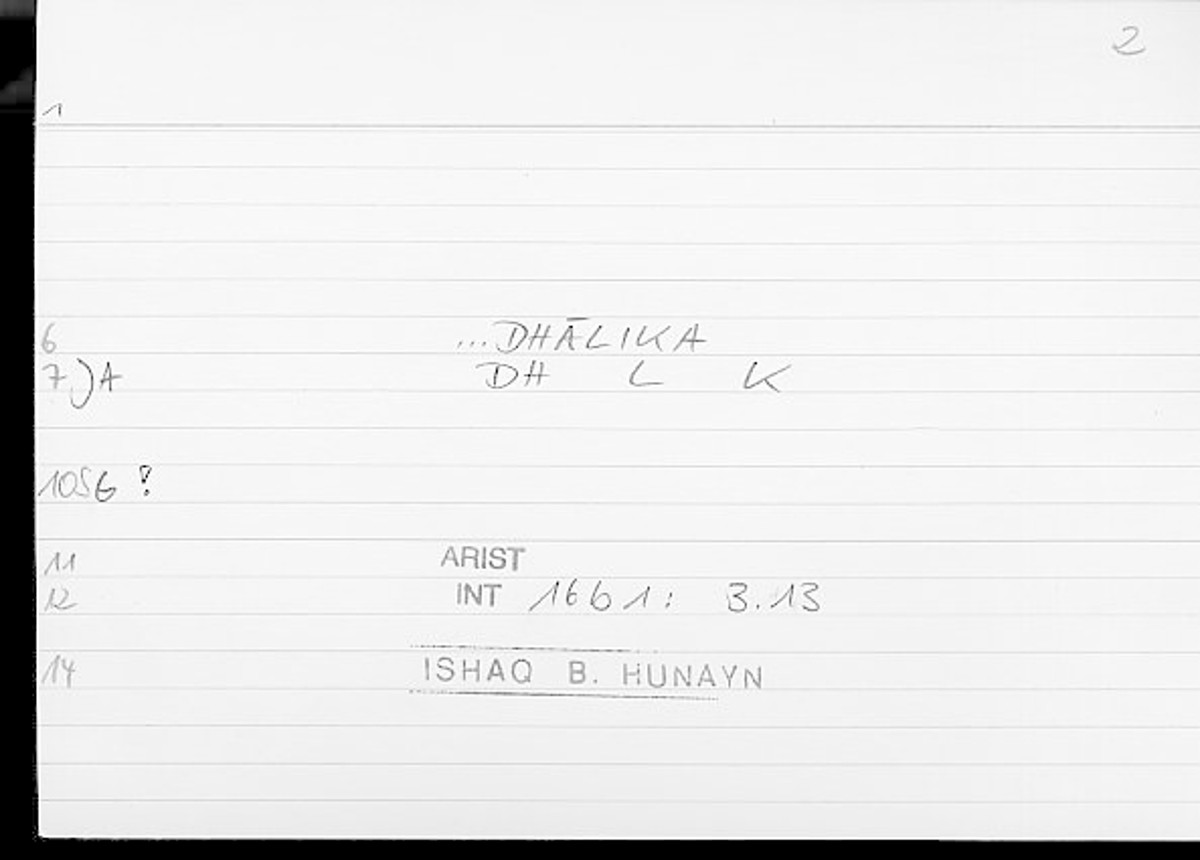 2
1
6 ...DHĀLIKA
7)A DH L K
1056 ?
11 ARIST
12 INT 16b1: 3.13
14 ISHAQ B. HUNAYN